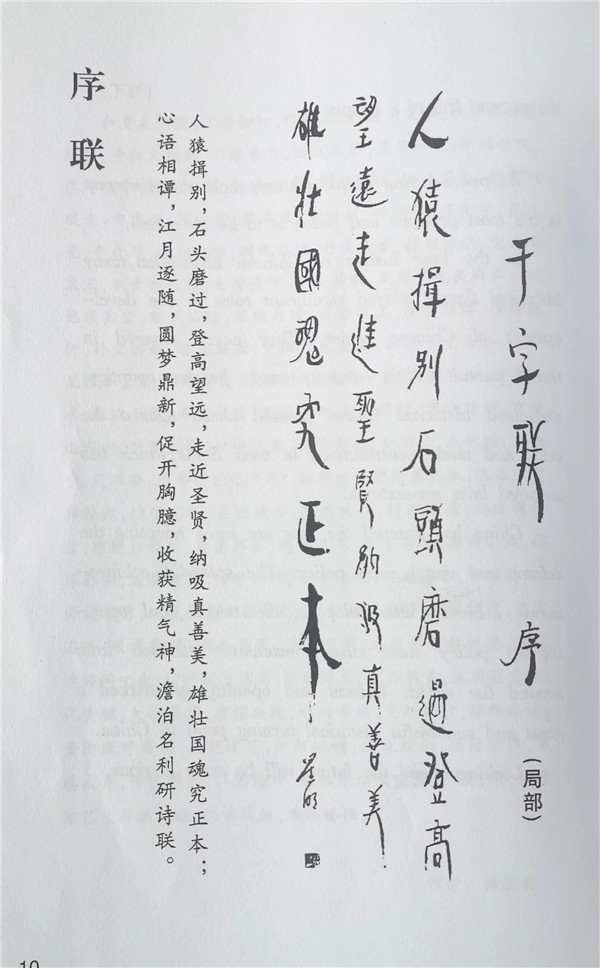 千字联 序(局部)
人猿揖别石頭磨過登高
望遠走進聖賢納吸真善美
雄壯國魂究正本
序联
人猿揖别，石头磨过，登高望远，走近圣贤，纳吸真善美，雄壮国魂究正本；
心语相谭，江月逐随，圆梦鼎新，促开胸臆，收获精气神，澹泊名利研诗联。
10